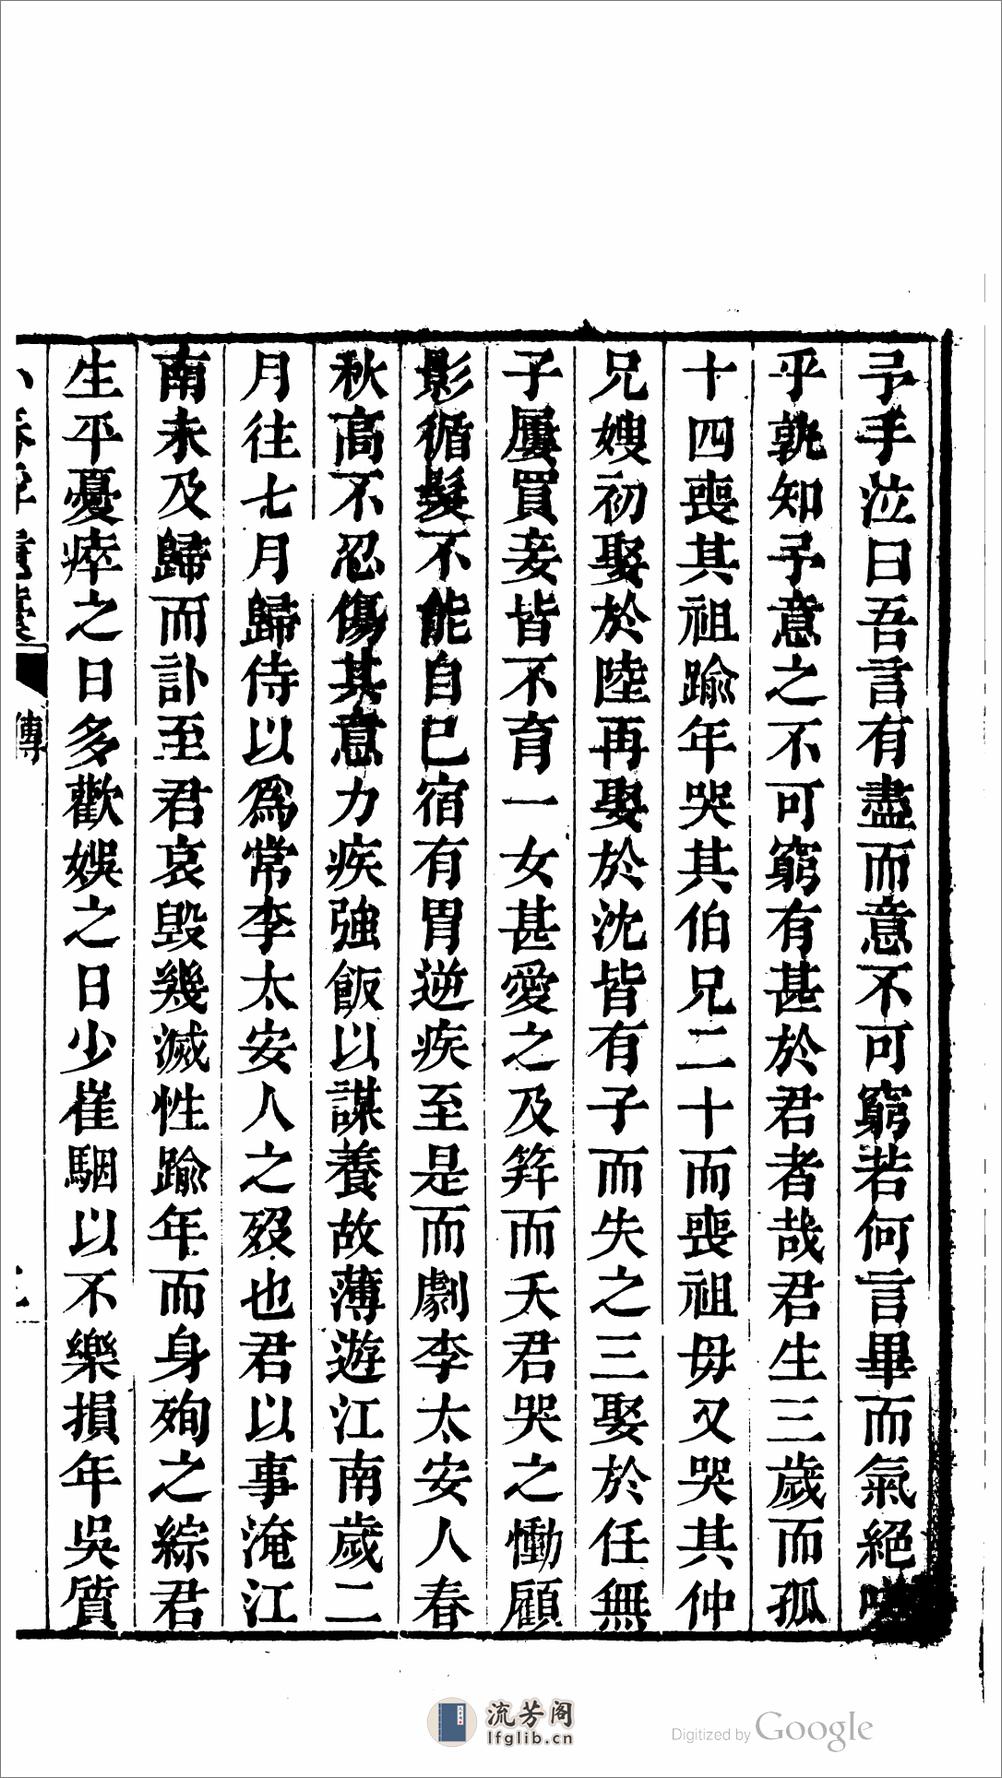 予手泣曰吾言有盡而意不可窮若何言畢而氣絕嗚
乎孰知予意之不可窮有甚於君者哉君生三歲而孤
十四喪其祖踰年哭其伯兄二十而喪祖母又哭其仲
兄嫂初娶於陸再娶於沈皆有子而失之三娶於任無
子屢買妾皆不育一女甚愛之及笄而夭君哭之慟顧
影循髮不能自已宿有胃逆疾至是而劇李太安人春
秋高不忍傷其意力疾強飯以謀養故薄遊江南歲二
月往七月歸侍以爲常李太安人之歿也君以事淹江
南未及歸而訃至君哀毀幾滅性踰年而身殉之綜君
生平憂瘁之日多歡娛之日少崔駰以不樂損年吳質
傳
流芳阁
lfglib.cn
Digitized by Google